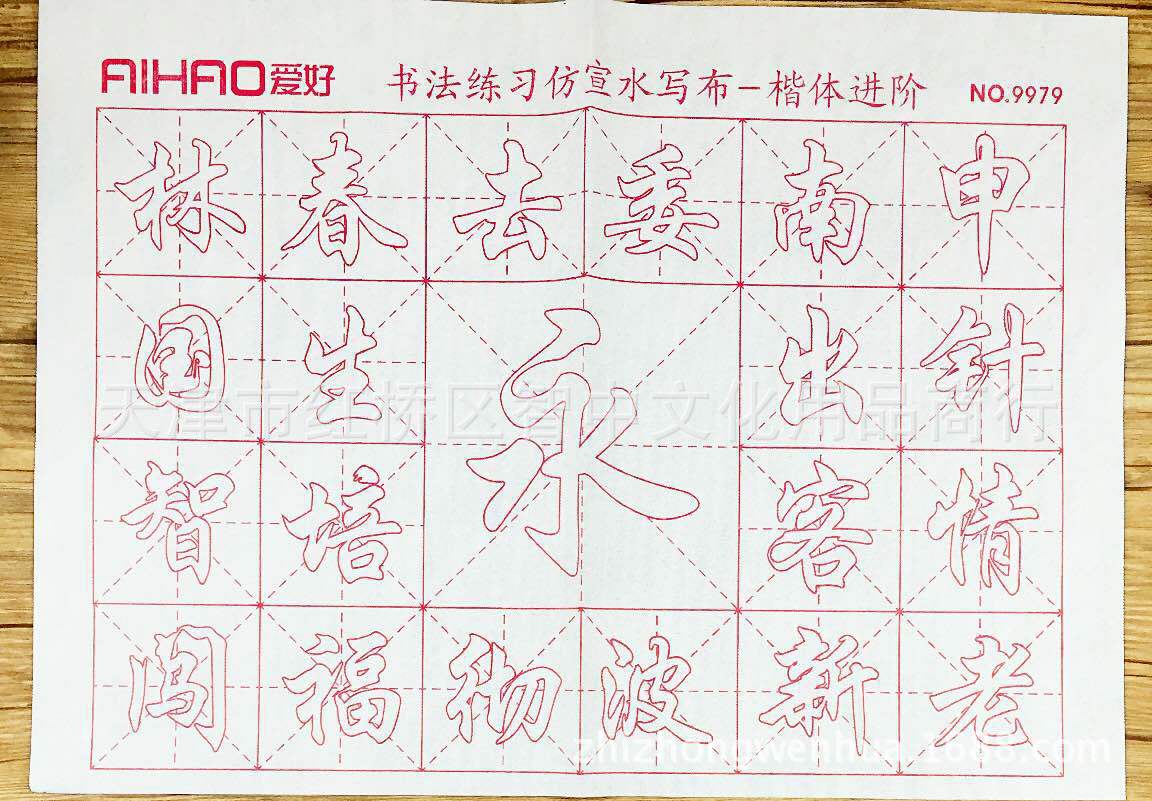 AIHAO爱好 书法练习仿宣水写布-楷体进阶 NO.9979
林 春 去 委 南 申
国 生 永 出 针
天津市红桥区智中文化用品商行
智 培 客 情
闯 福 波 新 老
zhizhongwenhua.1688.com